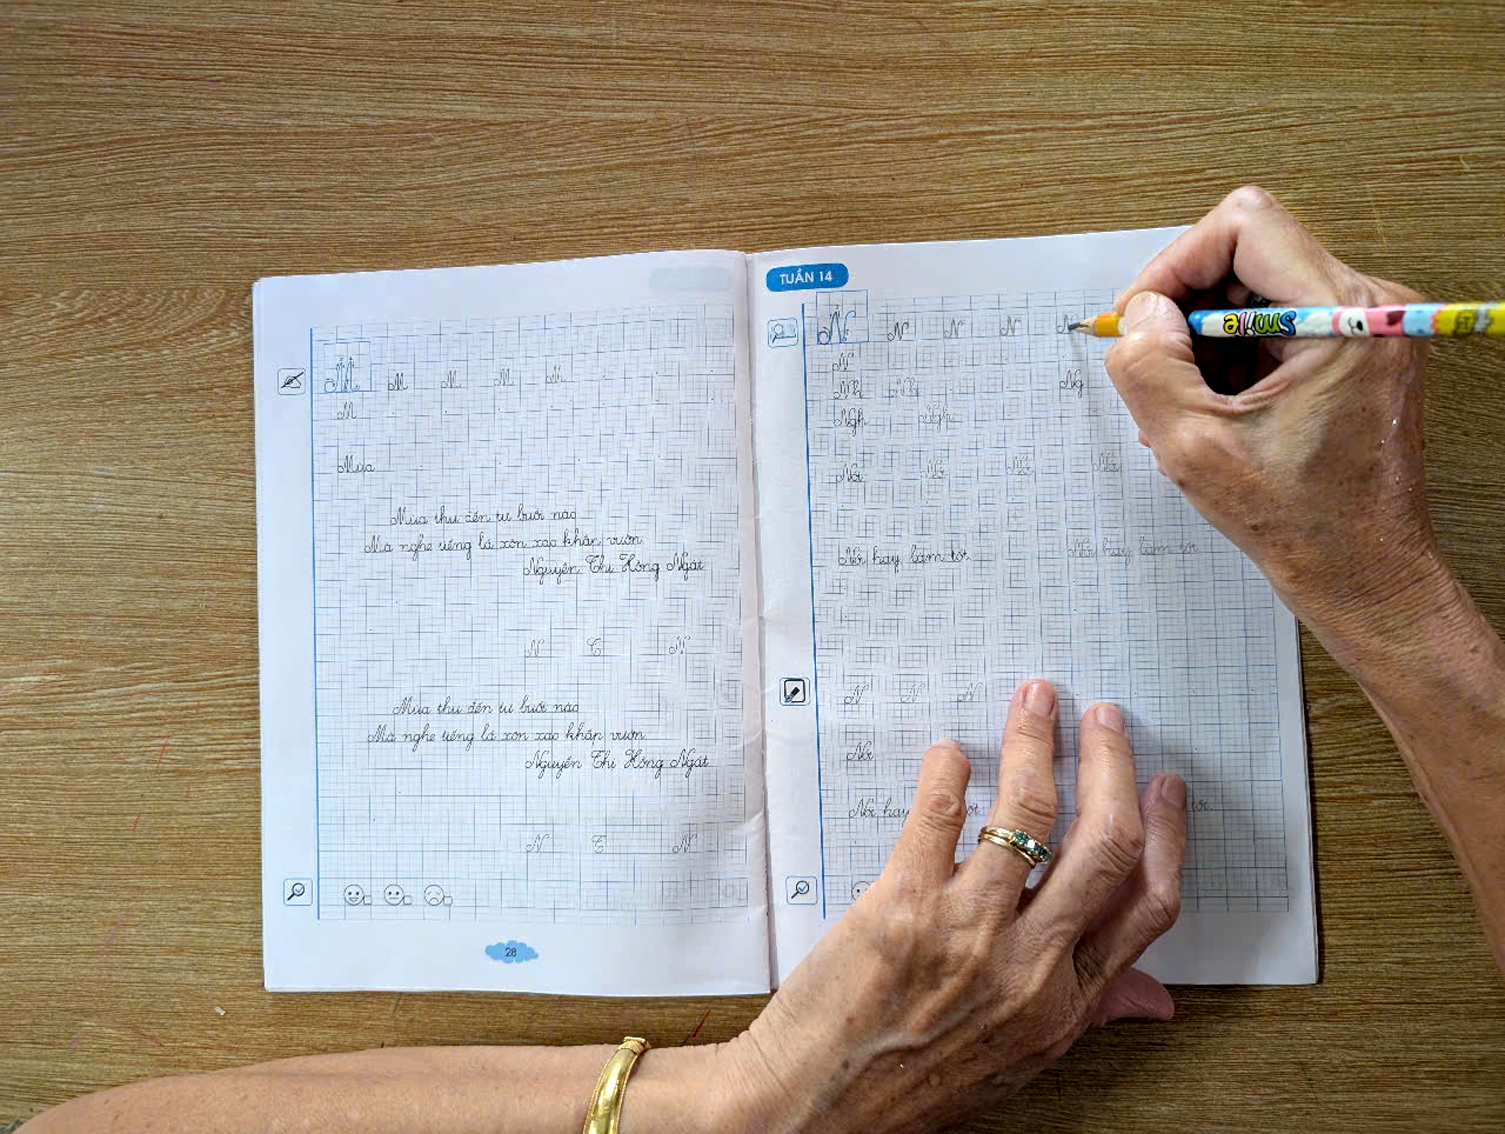 M M M M M
M
Mùa
Mùa thu đến từ buổi nào
Mà nghe tiếng lá xôn xao khắp vườn.
Nguyễn Thị Hồng Ngát
N T N
Mùa thu đến từ buổi nào
Mà nghe tiếng lá xôn xao khắp vườn.
Nguyễn Thị Hồng Ngát
N T N
28
TUẦN 14
N N N N N
N
Nh Nh Ng
Ngh Ngh
Nói Nói Nói Nói
Nói hay làm tốt. Nói hay làm tốt.
N N N
Nói
Nói hay tốt. tốt.
Smile